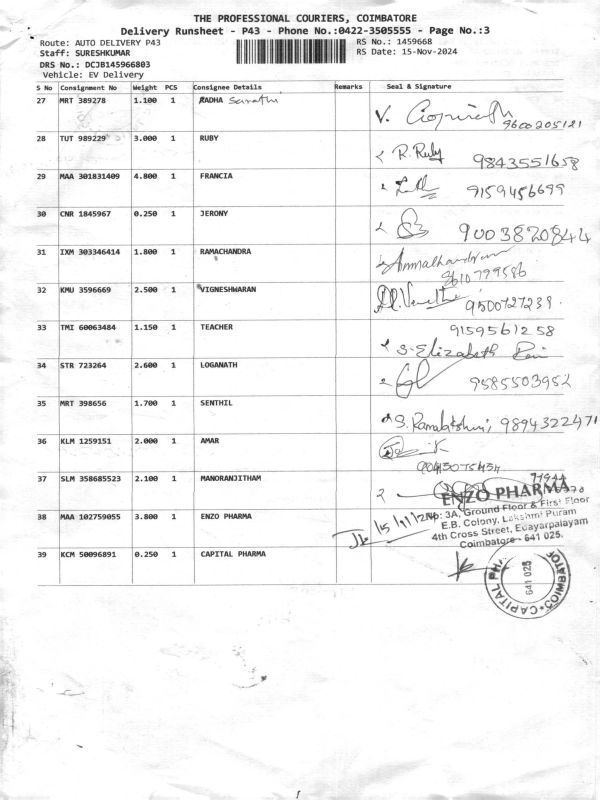 THE PROFESSIONAL COURIERS, COIMBATORE
Delivery Runsheet - P43 - Phone No.:0422-3505555 - Page No.:3
Route: AUTO DELIVERY P43
RS No.: 1459668
Staff: SURESHKUMAR
RS Date: 15-Nov-2024
DRS No.: DCJB145966803
Vehicle: EV Delivery
S No Consignment No Weight PCS Consignee Details Remarks Seal & Signature
27 MRT 389278 1.100 1 RADHA Sarathi
V. 9600205121
28 TUT 989229 3.000 1 RUBY
R. Ruby 9843551658
29 MAA 301831409 4.800 1 FRANCIA
9159456699
30 CNR 1845967 0.250 1 JERONY
9003820844
31 IXM 303346414 1.800 1 RAMACHANDRA
32 KMU 3596669 2.500 1 VIGNESHWARAN
9500727239.
33 TMI 60063484 1.150 1 TEACHER
9159561258
S. Elizabeth Rani
34 STR 723264 2.600 1 LOGANATH
9585503952
35 MRT 398656 1.700 1 SENTHIL
S. Ramalakshmi 9894322471
36 KLM 1259151 2.000 1 AMAR
37 SLM 358685523 2.100 1 MANORANJITHAM
38 MAA 102759055 3.800 1 ENZO PHARMA
ENZO PHARMA
No: 3A, Ground Floor & First Floor
E.B. Colony, Lakshmi Puram
4th Cross Street, Edayarpalayam
Coimbatore - 641 025.
15/11/24
39 KCM 50096891 0.250 1 CAPITAL PHARMA
CAPITAL PH COIMBATOR
641 025